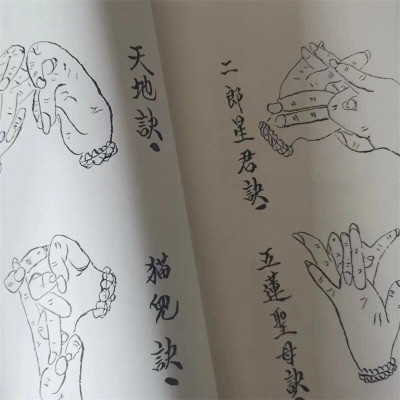 二郎星君訣。
五蓮聖母訣。
天地訣。
猫兒訣。